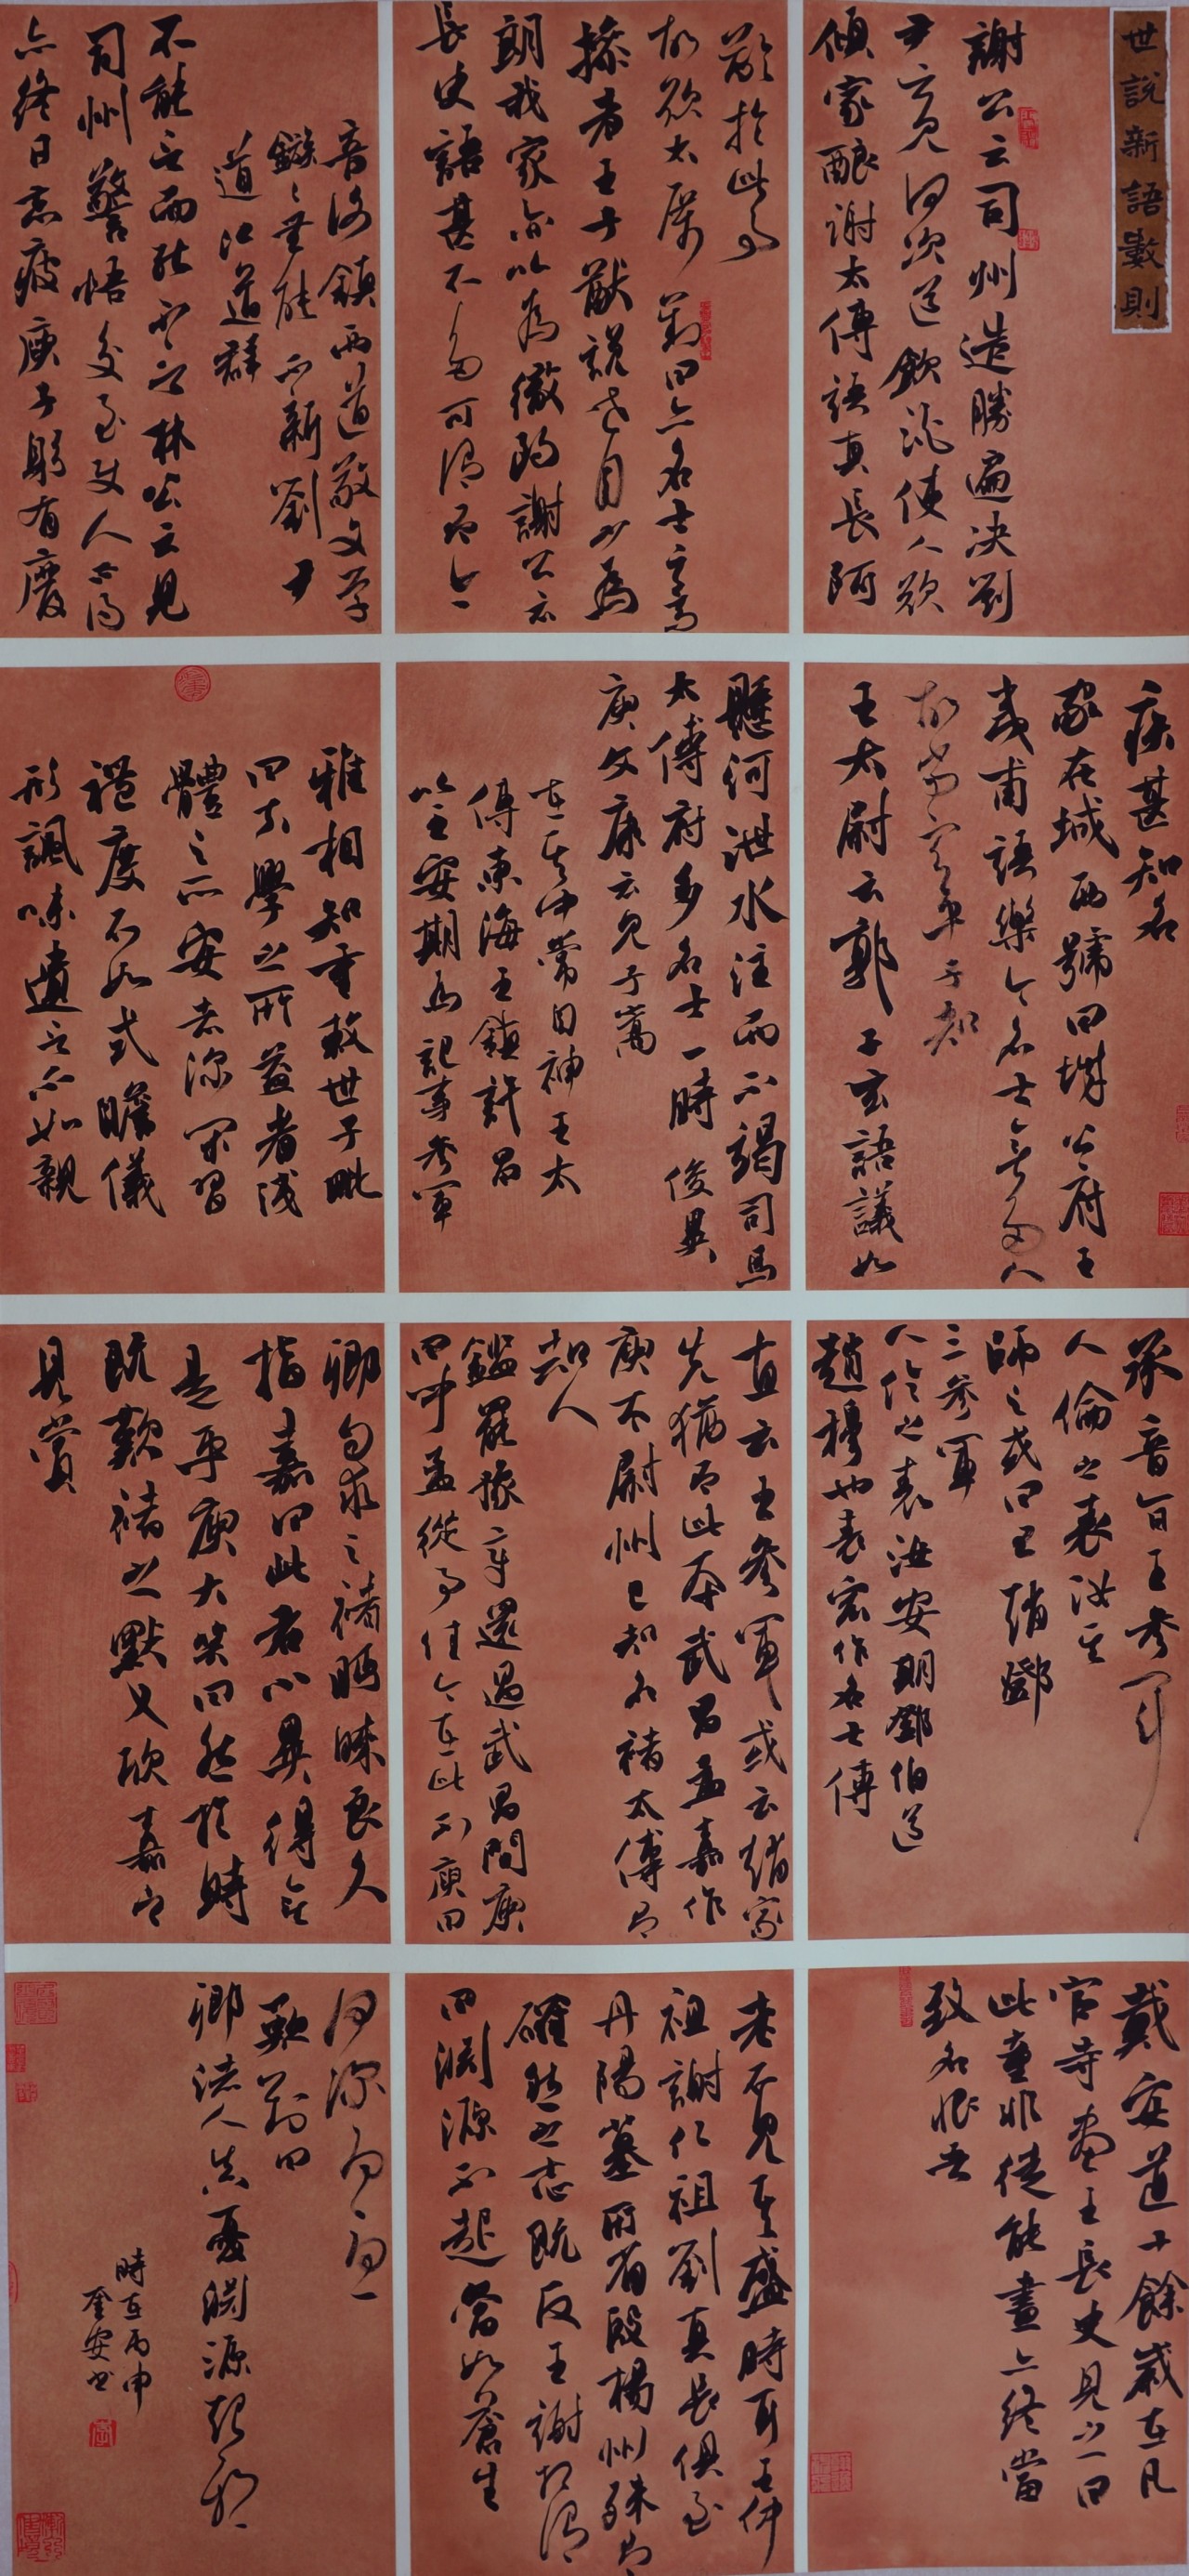 世說新語數則
謝公云司州造勝遍决劉
尹云見何次道飲酒使人欲
傾家釀謝太傅語真長阿
齡於此事
故欲太厲劉曰亦名士之高
操者王子猷說世目少為
朗我家亦以為徹朗謝公云
長史語甚不多可謂有令
音謝鎮西道敬文學
鏃鏃無能不新劉尹
道江道群
不能言而能不言林公云見
司州警悟交至使人不得
亦終日忘疲庾子躬有廢
疾甚知名
家在城西號曰城公府王
夷甫語樂令名士無多人
故當容平子知
王太尉云郭子玄語議如
懸河泄水注而不竭司馬
太傅府多名士一時俊異
庾文康云見子嵩
在其中常自神王太
傅東海王鎮許昌
以王安期為記事參軍
雅相知重敕世子毗
曰夫學之所益者淺
體之所安者深閑習
禮度不如式瞻儀
形諷味遺言不如親
承音旨王參軍
人倫之表汝其
師之或曰王趙鄧
三參軍
人倫之表汝安期鄧伯道
趙穆也袁宏作名士傳
直云王參軍或云趙家
先猶有此本武昌孟嘉作
庾太尉州已知名褚太傅有
知人
鑑罷豫章還過武昌問庾
曰聞孟從事佳今在此不庾曰
卿自求之褚眄睞良久
指嘉曰此君小異得無
是乎庾大笑曰然於時
既歎褚之默又欣嘉之
見賞
戴安道十餘歲在瓦
官寺畫王長史見之曰
此童非徒能畫亦終當
致名恨吾
老不見其盛時耳王仲
祖謝仁祖劉真長俱至
丹陽墓所省殷楊州殊有
確然之志既反王謝相謂
曰淵源不起當如蒼生
何深為為
歎劉曰
卿諸人真憂淵源起耶
時在丙申
奎安書